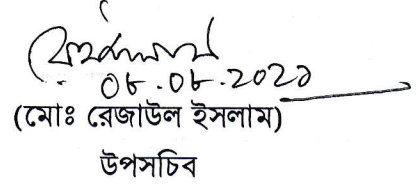 ০৮.০৮.২০২১
(মোঃ রেজাউল ইসলাম)
উপসচিব